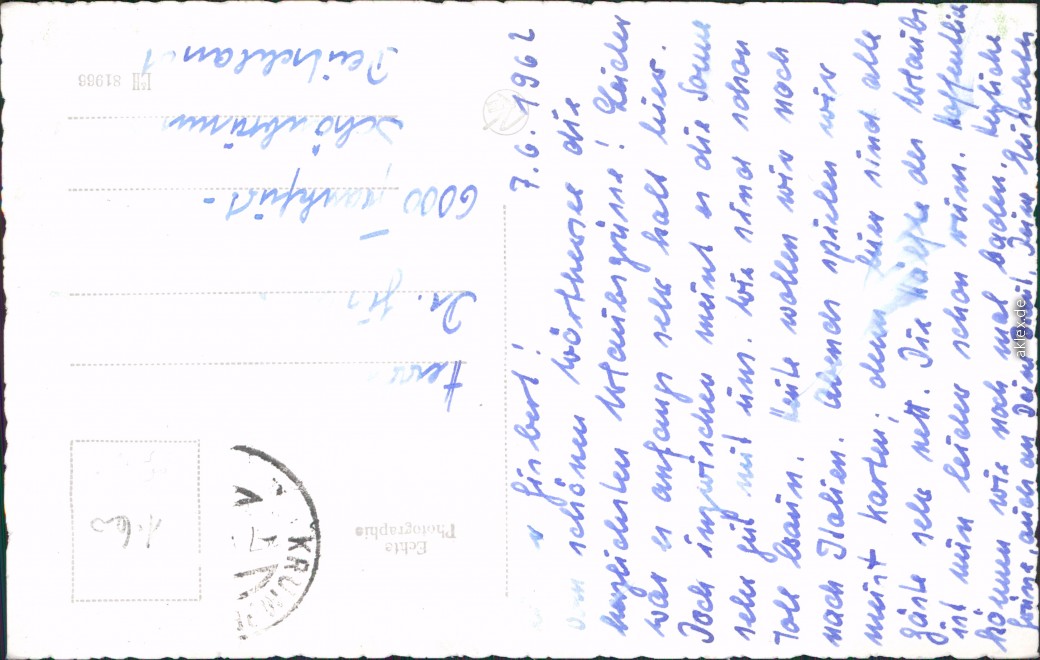 7.6.1962
Gisbert!
Vom schönen Wörthersee die
herzlichsten Urlaubsgrüsse! Leider
war es anfangs sehr kalt hier.
Doch inzwischen meint es die Sonne
sehr gut mit uns. Wir sind schon
toll braun. Heute wollen wir noch
nach Italien. Abends spielen wir
meist Karten, denn hier sind alle
Gäste sehr nett. Die Hälfte des Urlaubs
ist nun leider schon rum. Hoffentlich
können wir noch mal baden. Herzliche
Grüsse, auch an Deine
Herrn
Dr.
6000 Frankfurt-
Schönbrunn
Deutschland
Echte
Photographie
81988
KRUM
1.60
aklex.de